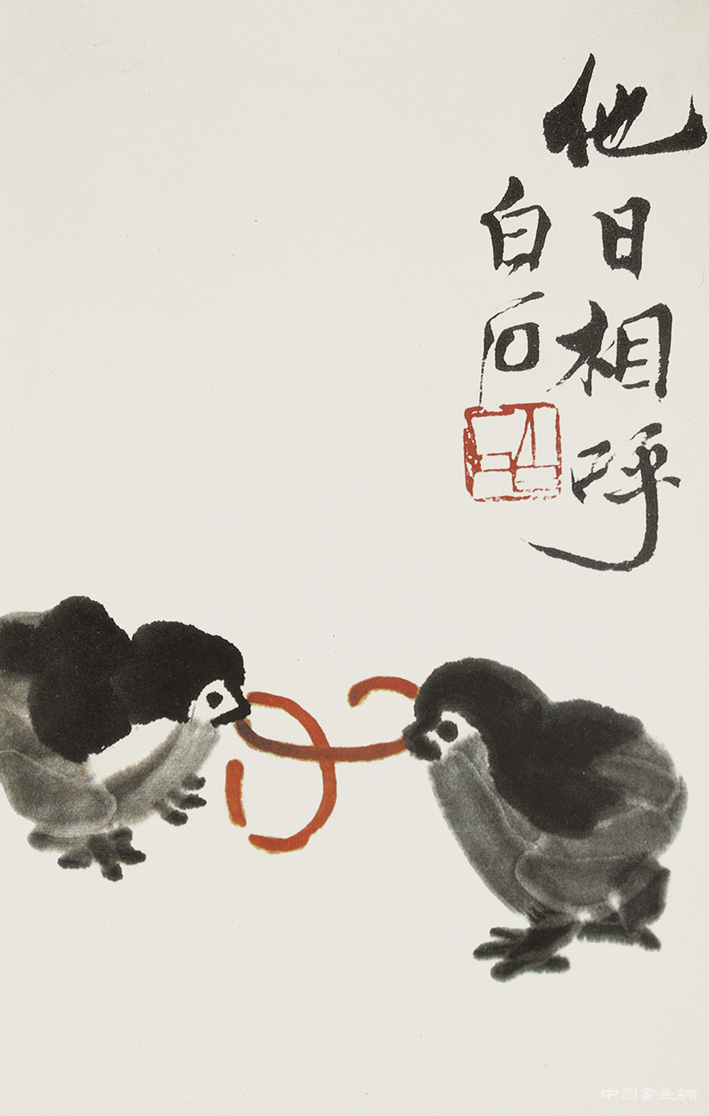 他日相呼
白石
中国書画網